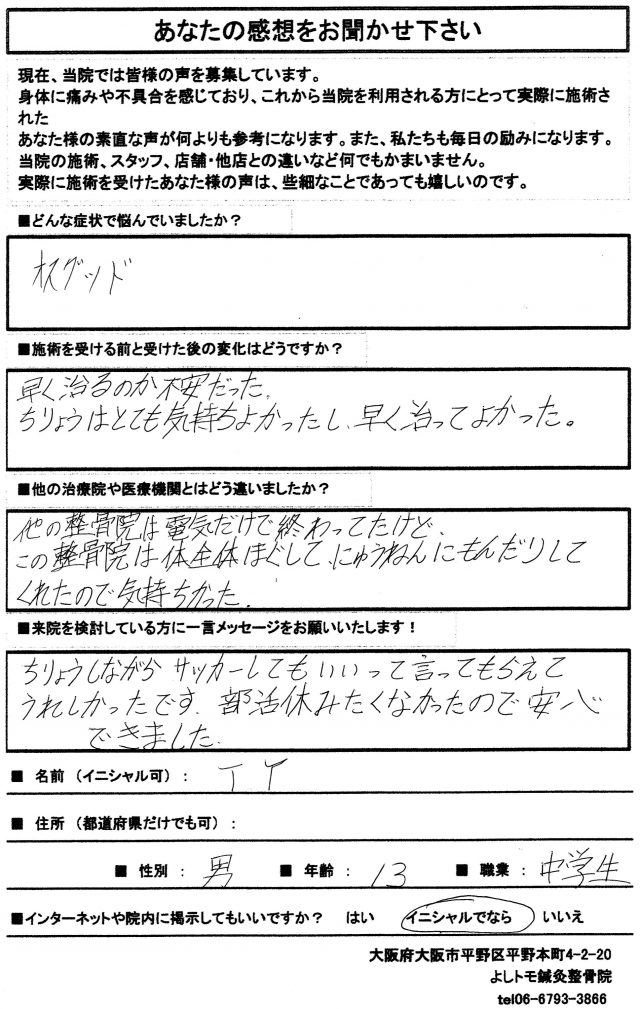 あなたの感想をお聞かせ下さい
現在、当院では皆様の声を募集しています。
身体に痛みや不具合を感じており、これから当院を利用される方にとって実際に施術さ
れた
あなた様の素直な声が何よりも参考になります。また、私たちも毎日の励みになります。
当院の施術、スタッフ、店舗・他店との違いなど何でもかまいません。
実際に施術を受けたあなた様の声は、些細なことであっても嬉しいのです。
■どんな症状で悩んでいましたか？
オスグッド
■施術を受ける前と受けた後の変化はどうですか？
早く治るのか不安だった。
ちりょうはとても気持ちよかったし、早く治ってよかった。
■他の治療院や医療機関とはどう違いましたか？
他の整骨院は電気だけで終わってたけど、
この整骨院は体全体ほぐして、にゅうねんにもんだりして
くれたので気持ちかった。
■来院を検討している方に一言メッセージをお願いいたします！
ちりょうしながら サッカーしてもいいって言ってもらえて
うれしかったです。部活休みたくなかったので安心
できました。
■ 名前（イニシャル可）： T Y
■ 住所（都道府県だけでも可）：
■ 性別： 男 ■ 年齢： 13 ■ 職業： 中学生
■インターネットや院内に掲示してもいいですか？ はい イニシャルでなら いいえ
大阪府大阪市平野区平野本町4-2-20
よしトモ鍼灸整骨院
tel06-6793-3866